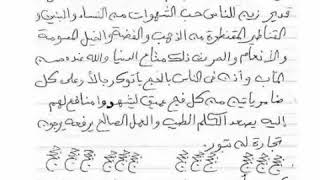 قدير زين للناس حب الشهوات من النساء والبنين و
القناطير المقنطرة من الذهب والفضة والخيل المسومة
والأنعام والحرث ذلك متاع الدنيا والله عنده حسن
المآب وأذن في الناس بالحج يأتوك رجالا وعلى كل
ضامر يأتين من كل فج عميق ليشهدوا منافع لهم
إليه يصعد الكلم الطيب والعمل الصالح يرفعه يرجون
تجارة لن تبور: